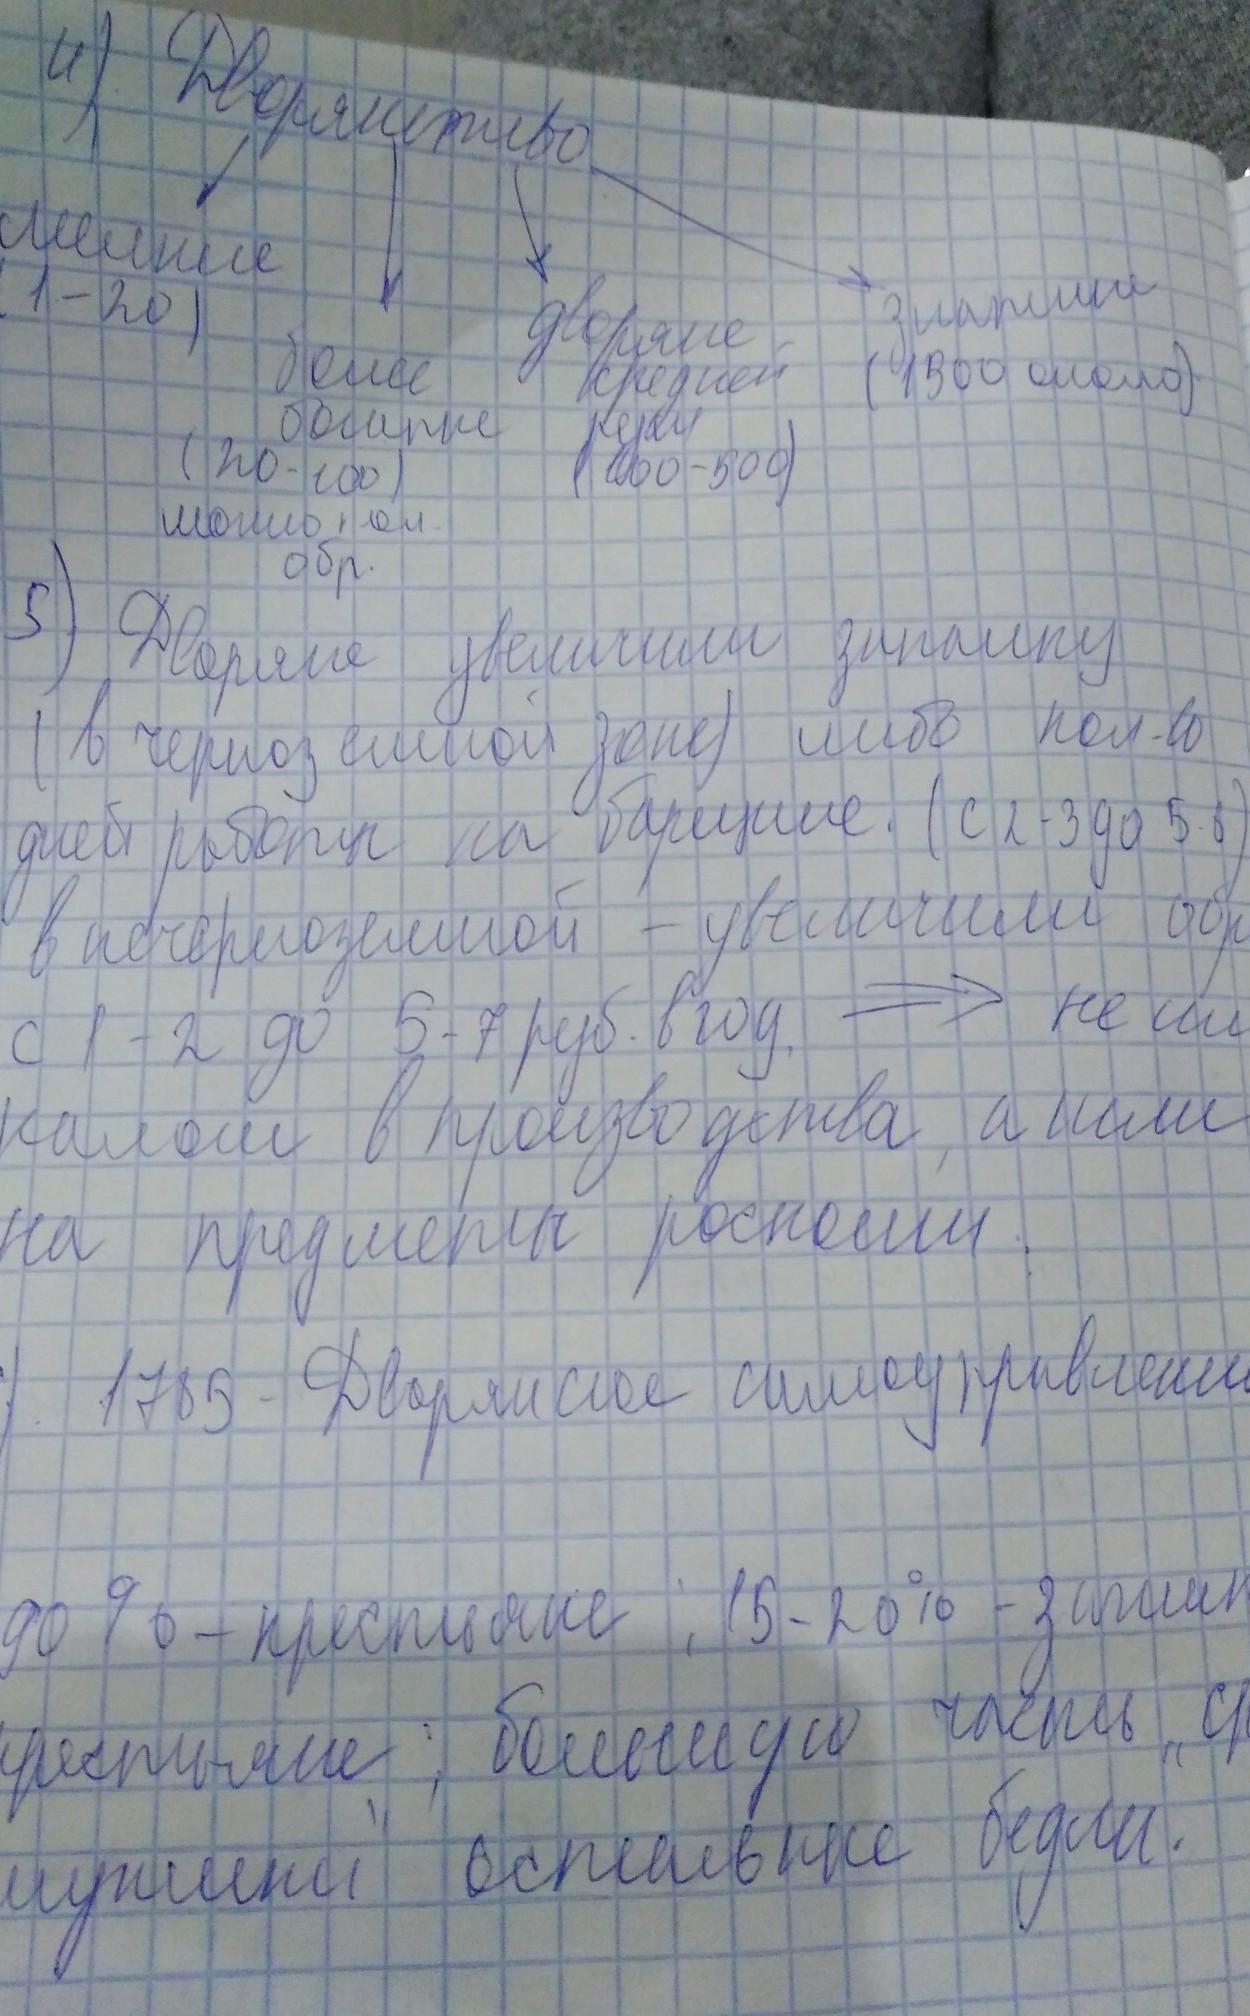 4) Дворянство
мелкие
(1-20)
более
богатые
(20-100)
можно пол.
обр.
дворяне
средней
руки
(100-500)
знатные
(1500 около)
5) Дворяне увеличили запашку
(в черноземной зоне) либо кол-во
дней работы на барщине. (с 2-3 до 5-6)
в нечерноземной - увеличили обр
с 1-2 до 5-7 руб. в год. => не
в производства, а
на предметы роскоши.
). 1785 - Дворянское самоуправлени
90% - крестьяне; 15-20% - зажит
крестьяне; большую часть "ср
мужики" остальные бедн.